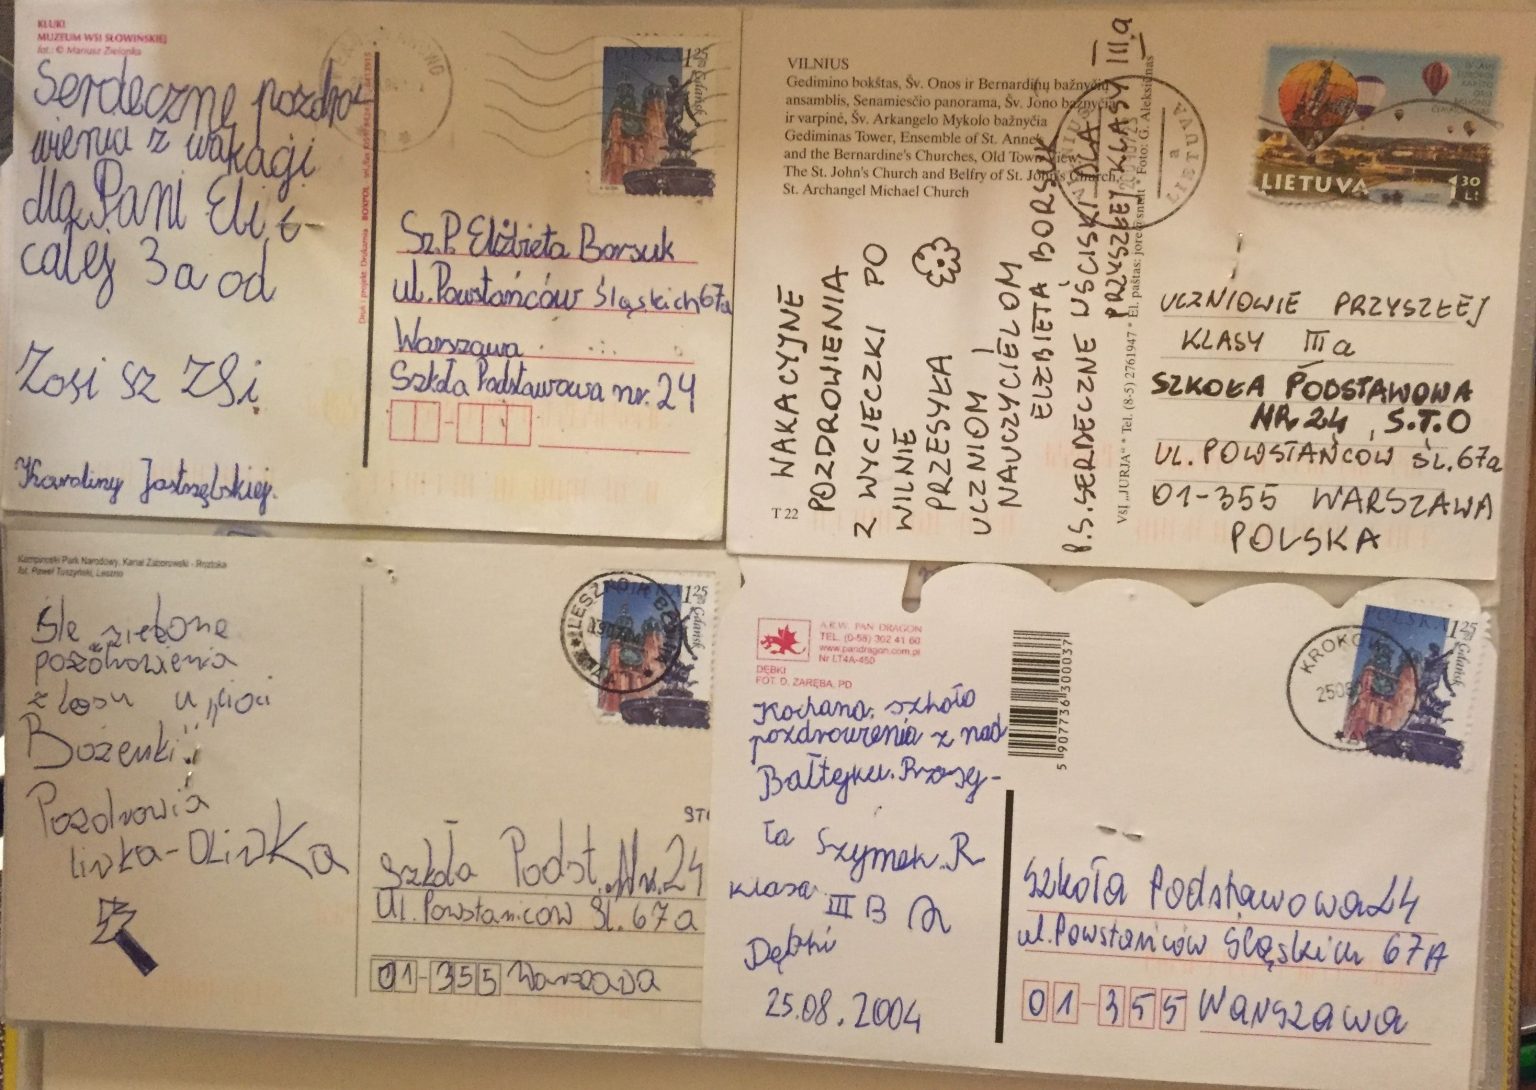 KLUKI
MUZEUM WSI SŁOWIŃSKIEJ
fot.: © Mariusz Zielonka
Serdeczne pozdro-
wienia z wakagi
dla Pani Eli i
całej 3a od
Zosi
Karoliny Jastrzębskiej.
POLSKA 1 25
Gdańsk
Sz.P. Elżbieta Borsuk
ul. Powstańców Śląskich 67a
Warszawa
Szkoła Podstawowa nr. 24
VILNIUS
Gedimino bokštas, Šv. Onos ir Bernardinų bažnyčių
ansamblis, Senamiesčio panorama, Šv. Jono bažnyčia
ir varpinė, Šv. Arkangelo Mykolo bažnyčia
Gediminas Tower, Ensemble of St. Anne's
and the Bernardine's Churches, Old Town view,
The St. John's Church and Belfry of St. John's Church,
St. Archangel Michael Church
WAKACYJNE
POZDROWIENIA
Z WYCIECZKI PO
WILNIE
PRZESYŁA
UCZNIOM I
NAUCZYCIELOM
ELŻBIETA BORSUK
P.S. SERDECZNE UŚCISKI DLA
PRZYSZŁEJ KLASY III a
T 22
VšĮ „JURJA" * Tel. (8-5) 2761947 * El. paštas: * Foto: G. Aleksiūnas
VILNIUS
a
LIETUVA
LIETUVA 1 30 Lt
UCZNIOWIE PRZYSZŁEJ
KLASY III a
SZKOŁA PODSTAWOWA
NR 24 S.T.O
UL. POWSTAŃCÓW ŚL. 67a
01-355 WARSZAWA
POLSKA
Kampinoski Park Narodowy. Kanał Zaborowski - Roztoka
fot. Paweł Tuszyński, Leszno
Śle zielone
pozdrowienia
z lasu u „cioci
Bożenki"
Pozdrowia
liwka-OLIWKa
LESZNO K. BŁONIA
1 25
Gdańsk
STO
Szkoła Podst. Nr. 24
Ul. Powstańcow Śl. 67a
01-355 Warszawa
A.R.W. PAN DRAGON
TEL. (0-58) 302 41 60
www.pandragon.com.pl
Nr LT4A-450
DĘBKI
FOT. D. ZARĘBA, PD
Kochana szkoło
pozdrowienia z nad
Bałtyku. Przesy-
ła Szymek. R
klasa III B
Dębki
25.08.2004
5 907736 300037
KROKOWA
POLSKA 1 25
Gdańsk
Szkoła Podstawowa 24
ul. Powstańców Śląskich 67A
01-355 Warszawa